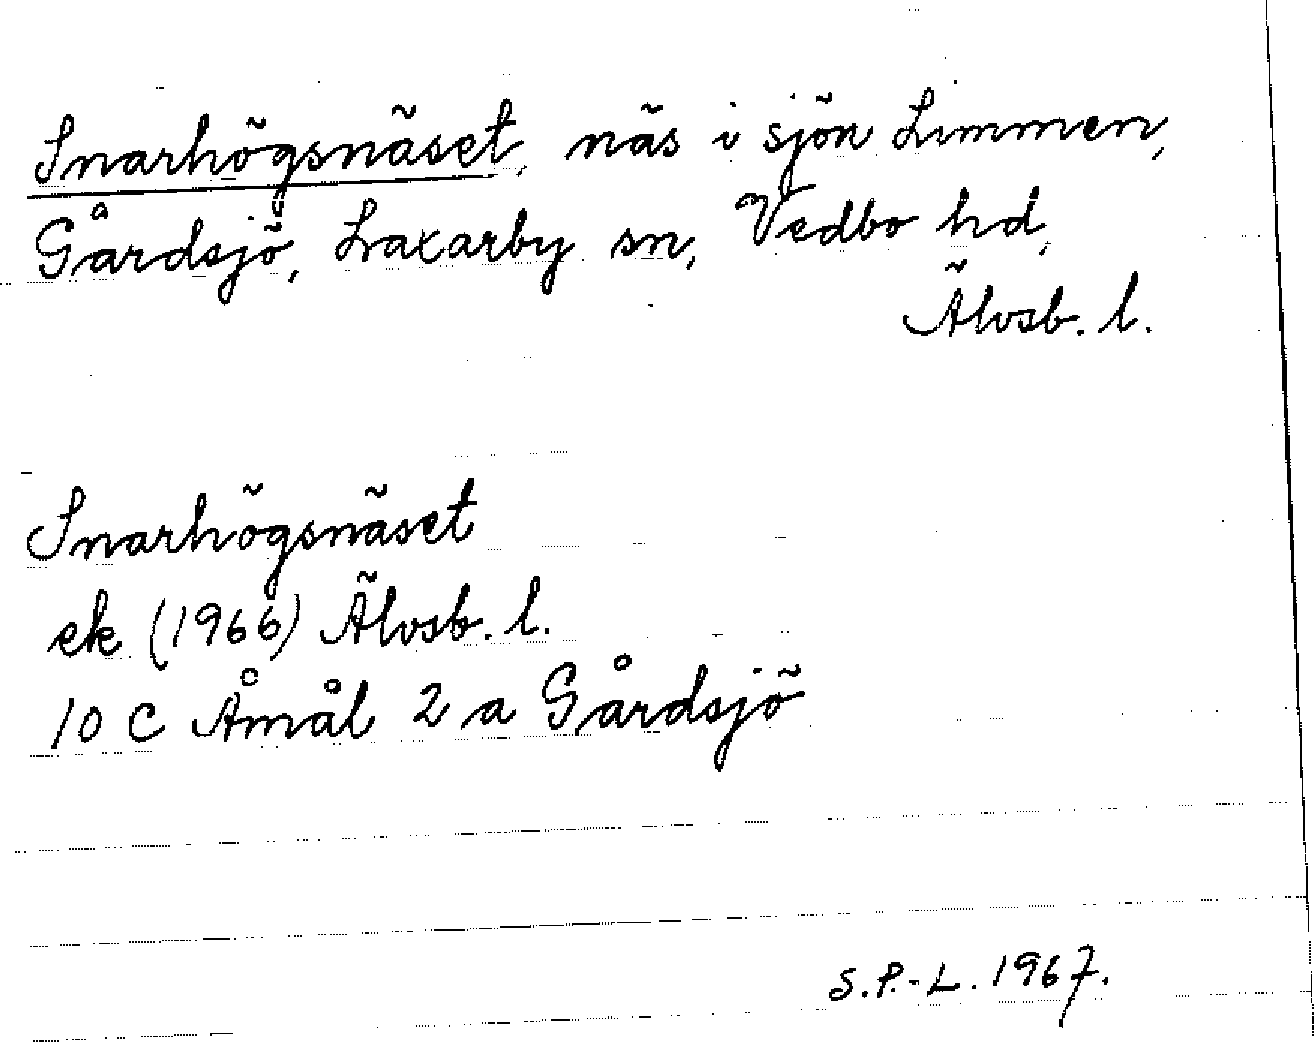 Snarhögsnäset, näs i sjön Limmen,
Gårdsjö, Laxarby sn, Vedbo hd,
Älvsb. l.
Snarhögsnäset
ek (1966) Älvsb. l.
10 C Åmål 2 a Gårdsjö
S.P.-L. 1967.